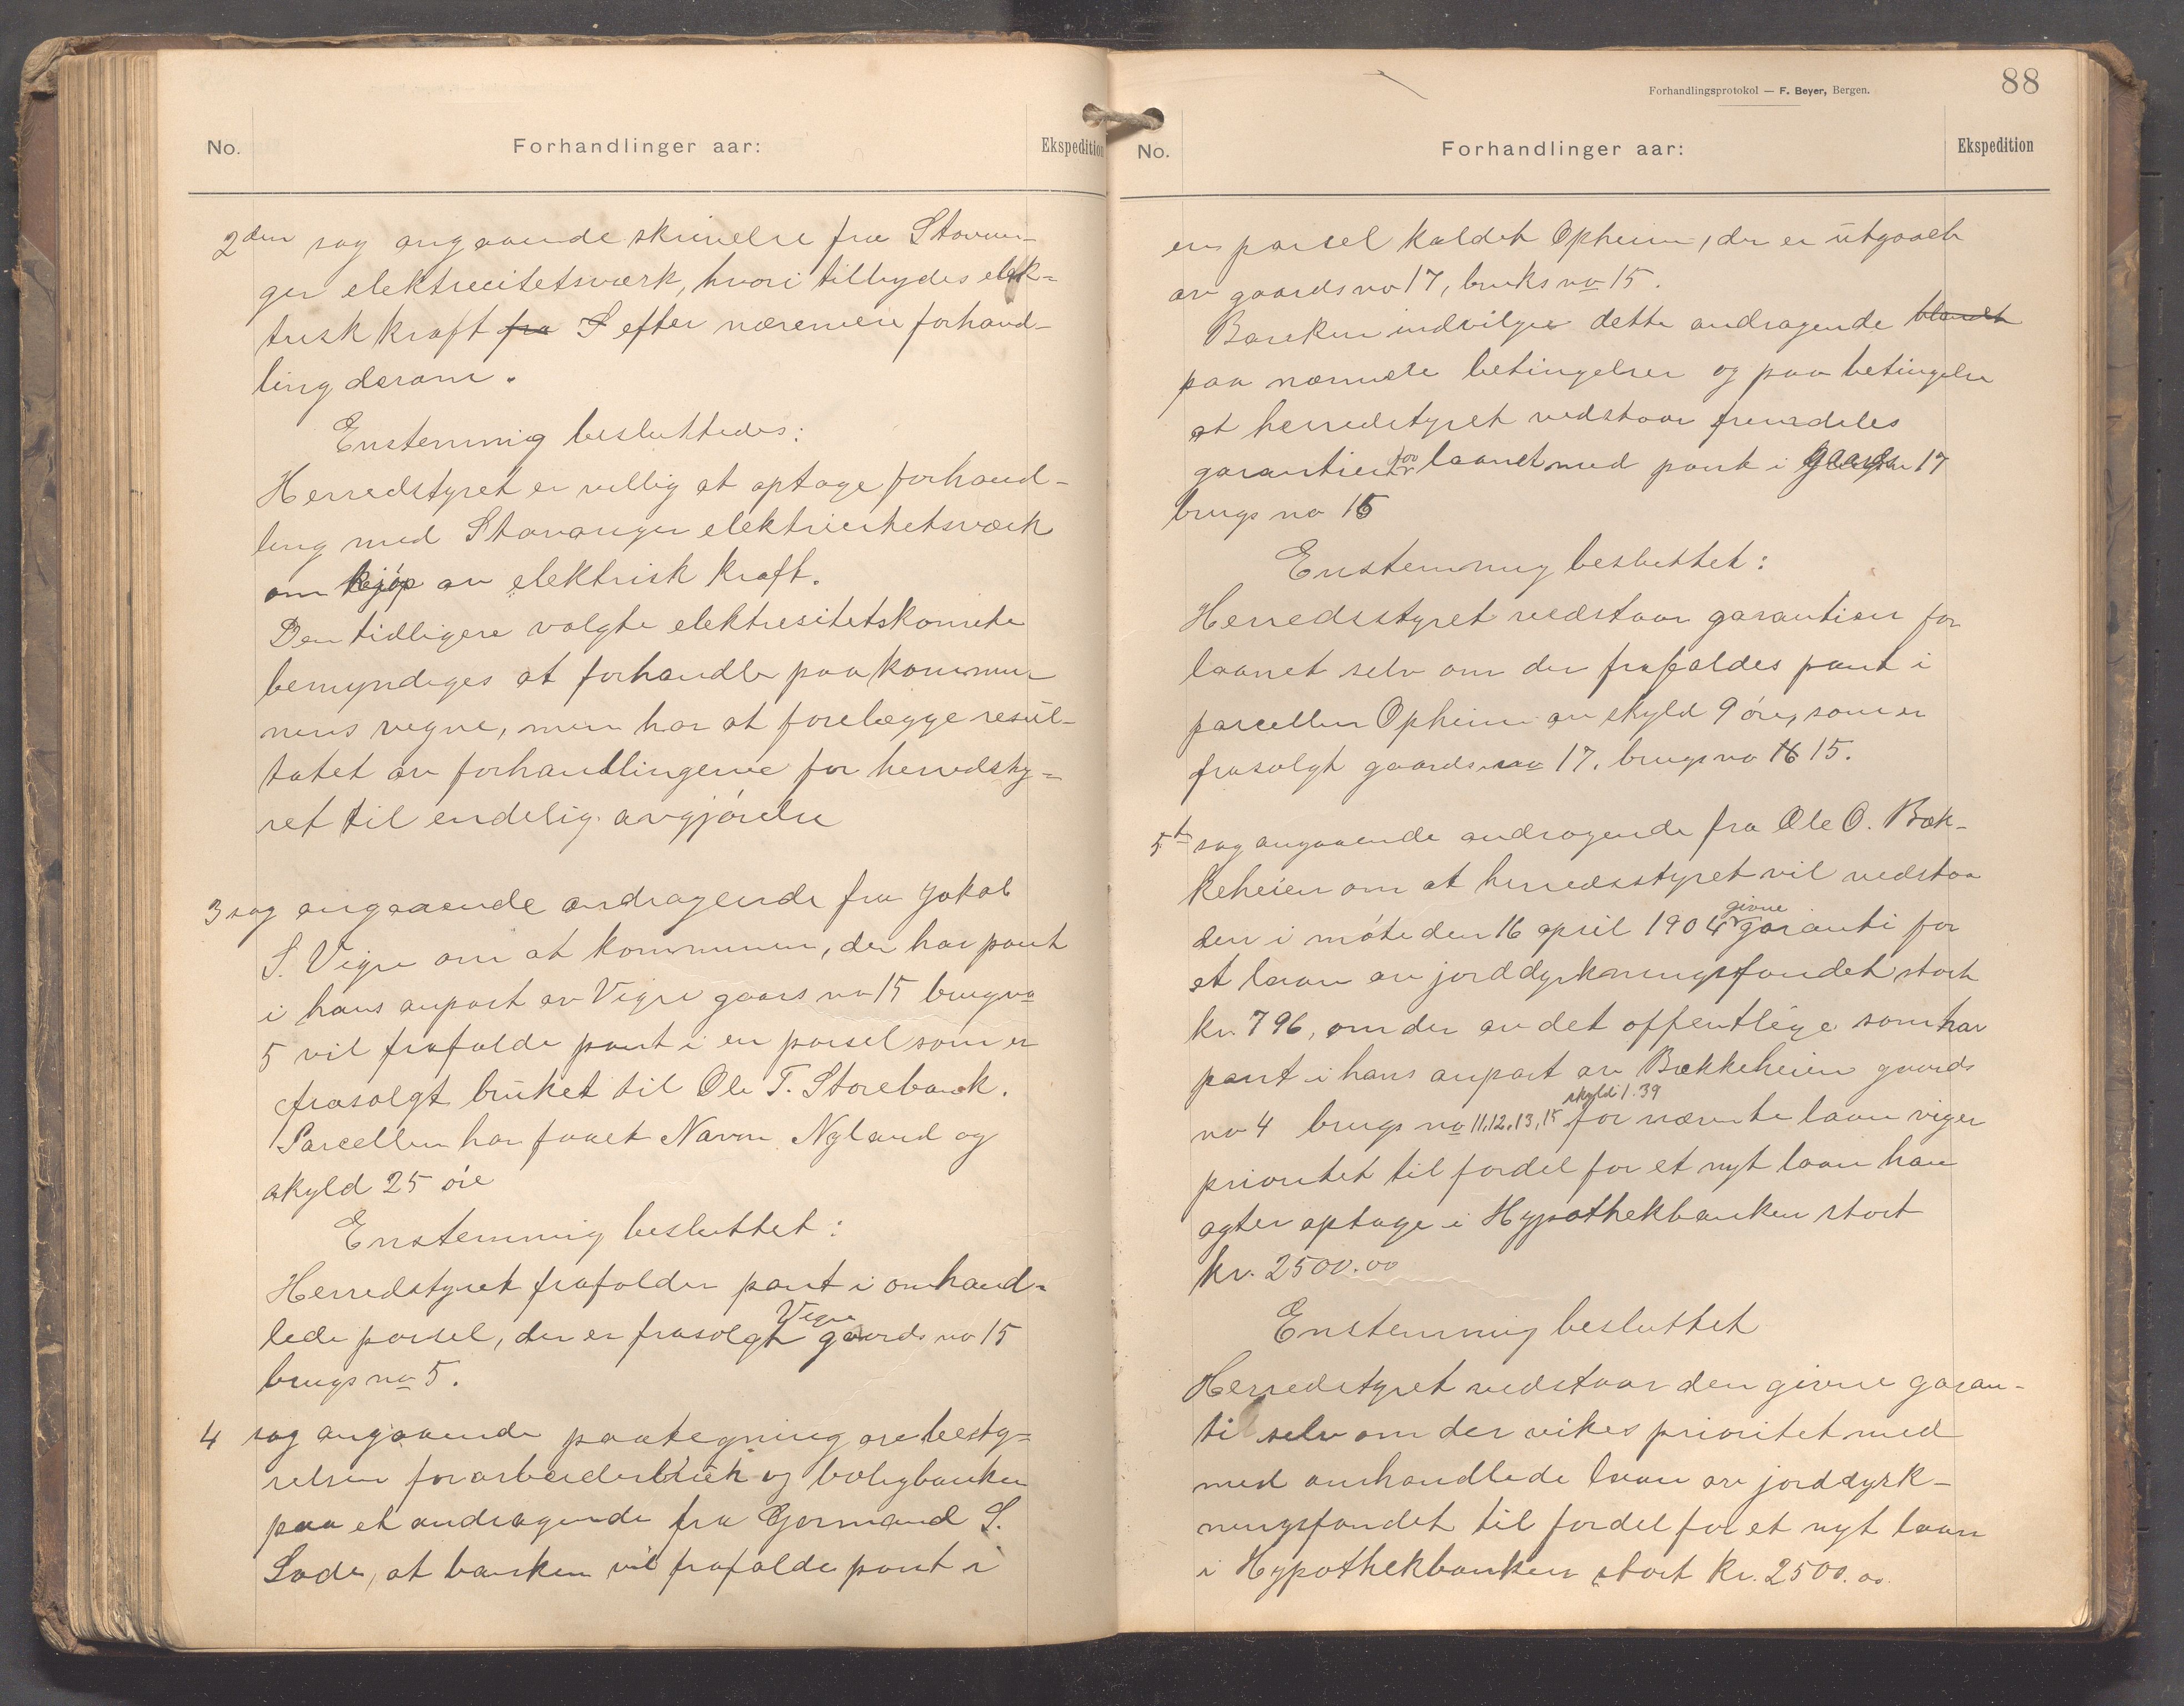 No. Forhandlinger aar: Ekspedition
2den sag angaaende skrivelse fra Stavan-
ger elektrecitetsværk, hvori tilbydes elek-
trisk kraft fra S efter nærmere forhand-
ling derom.
Enstemmig besluttedes:
Herredstyret er villig at optage forhand-
ling med Stavanger elektricitetsværk
om kjøp av elektrisk kraft.
Den tidligere valgte elektresitetskomite
bemyndiges at forhandle paa kommu-
nens vegne, men har at forelægge resul-
tatet av forhandlingerne for herredsty-
ret til endelig avgjørelse
3 sag angaaende andragende fra Jakob
S. Vigre om at kommunen, der har pant
i hans anpart av Vigre gaars no 15 brugno
5 vil frafalde pant i en parsel som er
frasolgt bruket til Ole T. Storebank.
Parcellen har faaet Navn Nyland og
skyld 25 øre
Enstemmig besluttet:
Herredstyret frafalder pant i omhand-
lede parsel, der er frasolgt Vigre gaards no 15
brugs no 5.
4 sag angaaende paategning av besty-
relsen for arbeiderbruk og boligbanken
paa et andragende fra Gormand S.
Lode, at banken vil frafalde pant i
Forhandlingsprotokol — F. Beyer, Bergen.
88
No. Forhandlinger aar: Ekspedition
en parsel kaldet Opheim, der er utgaaet
av gaards no 17, bruks no 15.
Banken indvilger dette andragende blandt
paa nærmere betingelser og paa betingelse
at herredstyret vedstaar fremdeles
garantien for laanet med pant i gaards 17
brugs no 15
Enstemmig besluttet:
Herredsstyret vedstaar garantien for
laanet selv om der frafaldes pant i
parcellen Opheim av skyld 9 øre, som er
frasolgt gaards no 17. brugs no 16 15.
5te sag angaaende andragende fra Ole O. Bæk-
keheien om at herredsstyret vil vedstaa
den i møte den 16 april 1904 givne garanti for
et laan av jorddyrkningsfondet stort
kr. 796, om der av det offentlige som har
pant i hans anpart av Bækkeheien gaards
no 4 brugs no 11.12.13,15 skyld 1.39 for nævnte laan viger
prioritet til fordel for et nyt laan han
agter optage i Hypothekbanken stort
kr. 2500.00
Enstemmig besluttet
Herredstyret vedstaar den givne garan-
ti selv om der vikes prioritet med
med omhandlede laan av jorddyrk-
ningsfondet til fordel for et nyt laan
i Hypothekbanken stort kr. 2500.00.